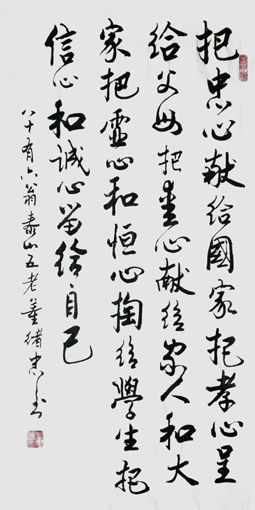 把忠心献给國家把孝心呈
给父母把爱心献给家人和大
家把靈心和恒心掏给學生把
信心和誠心留给自己
八十有六翁泰山五老董緒忠书